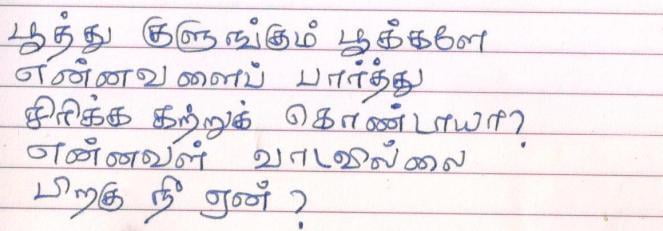 பூத்து குளுங்கும் பூக்களே
என்னவளைப் பார்த்து
சிரிக்க கற்றுக் கொண்டாயா?
என்னவள் வாடவில்லை
பிறகு நீ ஏன் ?